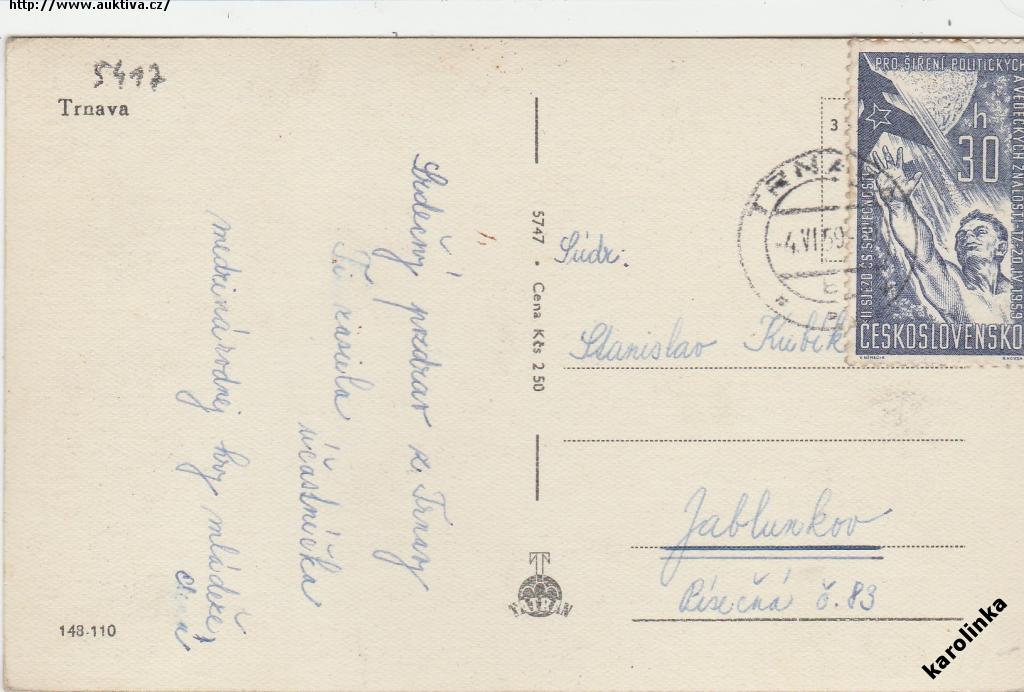 http://www.auktiva.cz/
5417
Trnava
Srdečný pozdrav z Trnavy
Ti zasiela
účastníčka
medzinárodnej hry mládeže
148-110
5747 • Cena Kčs 2·50
TATRAN
Súdr.
Stanislav Kubík
Jablunkov
Písečná č. 83
3
TRNAVA
-4.VI.59
PRO ŠÍŘENÍ POLITICKÝCH
A VĚDECKÝCH ZNALOSTÍ-17.-20.IV.1959
II SJEZD ČS SPOLEČNOSTI
h
30
ČESKOSLOVENSKO
karolinka